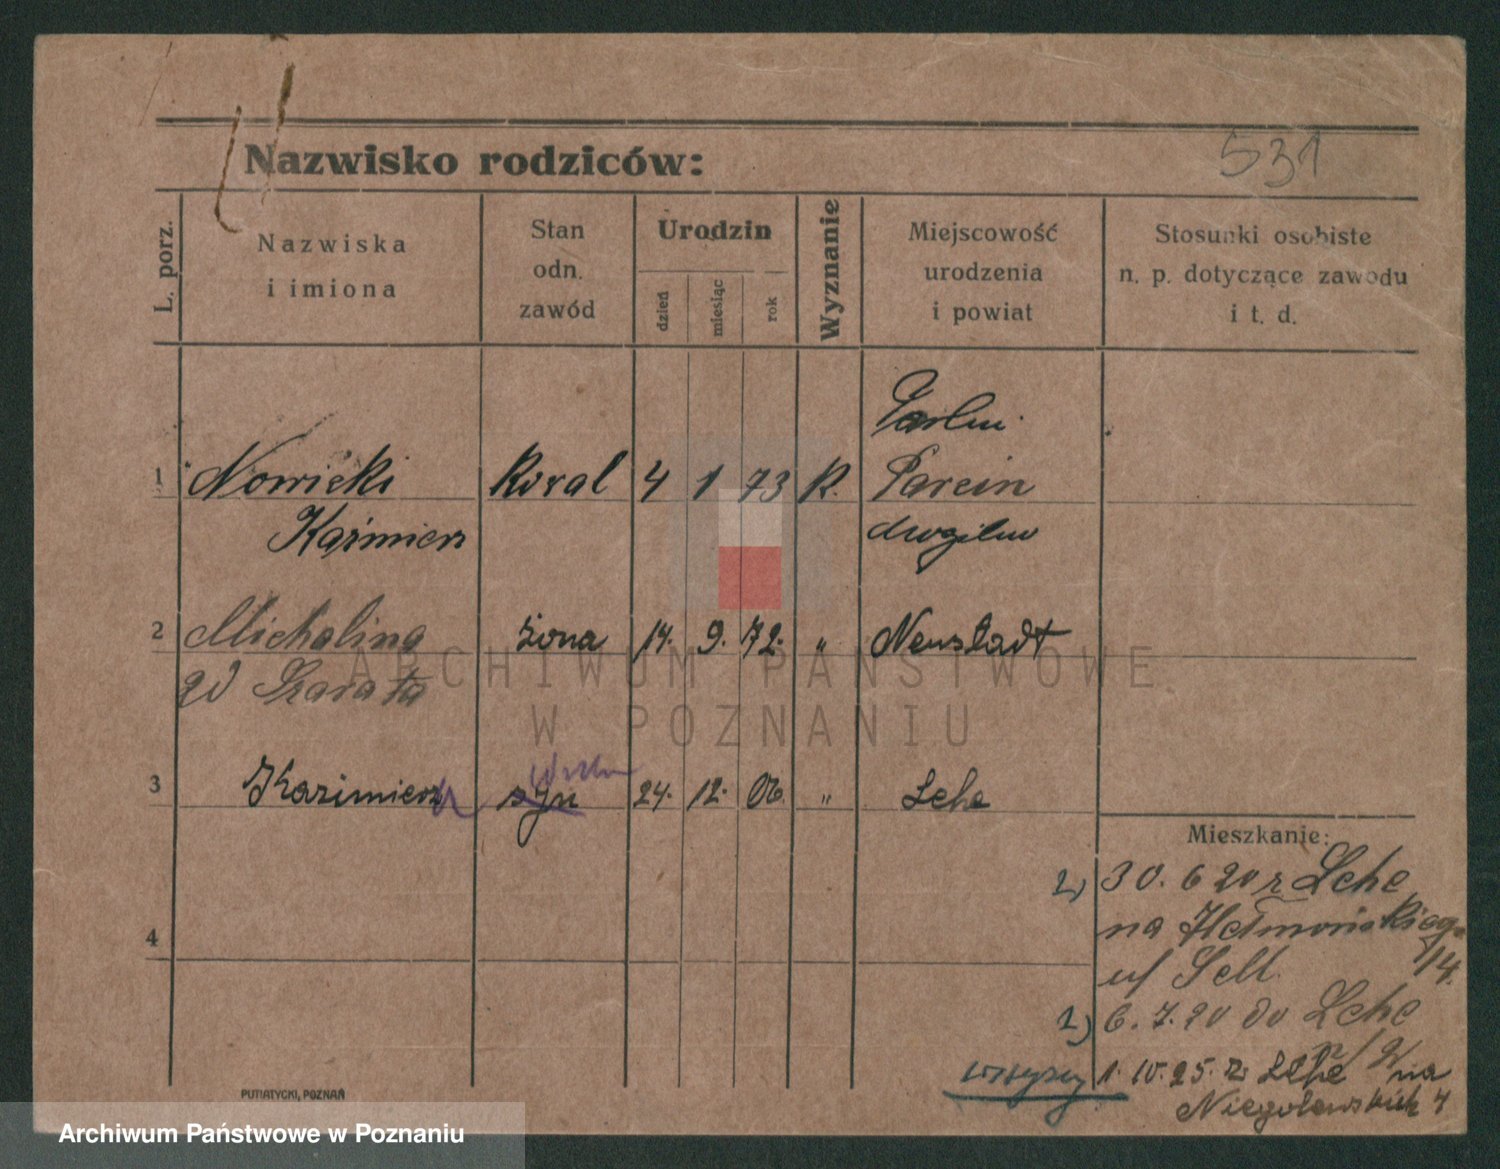 531
Nazwisko rodziców:
L. porz.
Nazwiska
i imiona
Stan
odn.
zawód
Urodzin
dzień
miesiąc
rok
Wyznanie
Miejscowość
urodzenia
i powiat
Stosunki osobiste
n. p. dotyczące zawodu
i t. d.
1 Nowicki Koval 4 1 73 K. Parcin
Kaźmierz
2 Michalina żona 14. 9. 72. " Neustadt
Szarata
3 Kazimierz syn 24. 12. 06. " Lehe
4
Mieszkanie:
2) 30. 6 20 z Lehe
na
14.
1) 6. 7. 20 do Lehe
wszyscy 1. 10. 25. z Lehe na
Niegolewskich 4
PUTIATYCKI, POZNAŃ
ARCHIWUM PAŃSTWOWE
W POZNANIU
Archiwum Państwowe w Poznaniu